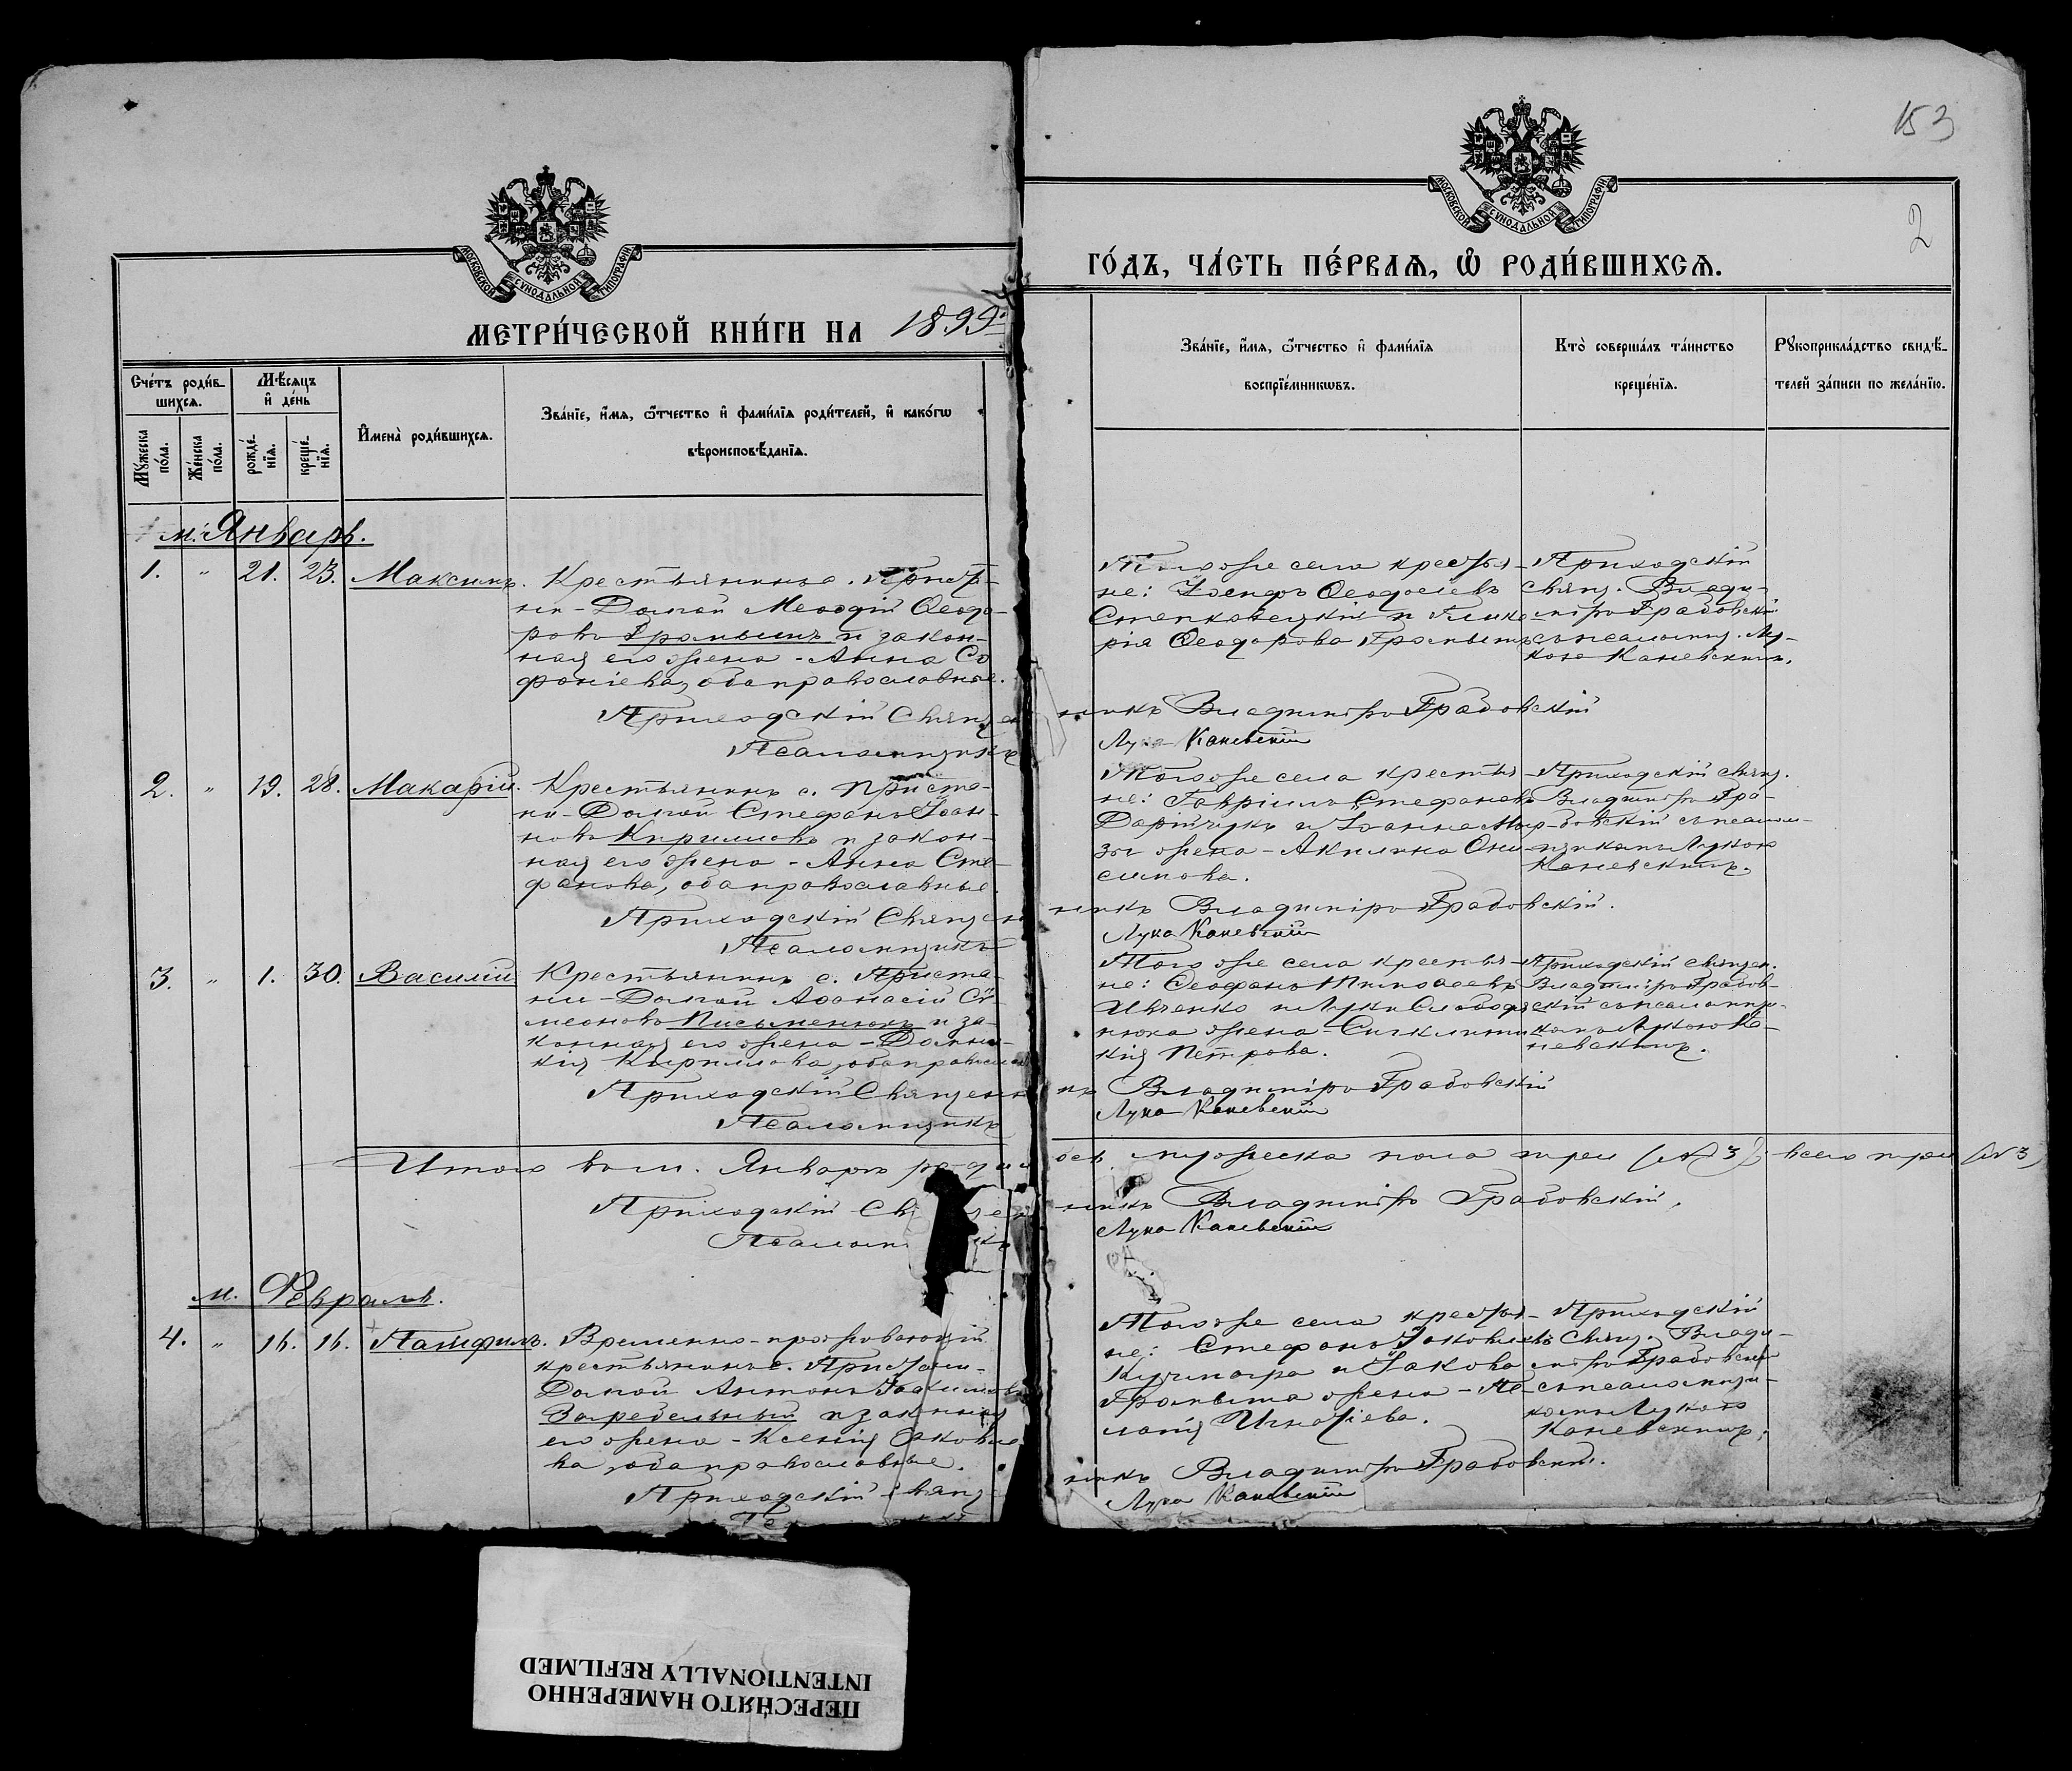 153
2
МОСКОВСКОЙ СУНОДАЛЬНОЙ ТИПОГРАФІИ
МОСКОВСКОЙ СУНОДАЛЬНОЙ ТИПОГРАФІИ
МЕТРИ́ЧЕСКОЙ КНИ́ГИ НА 1899
ГО́ДЪ, ЧА́СТЬ ПЕ́РВАЯ, Ѿ РОДИ́ВШИХСЯ.
Сче́тъ роди́в-
шихсѧ.
Мѣ́сѧцъ
и҆ де́нь
Мꙋ́жеска по́ла.
Же́нска по́ла.
рожде́-
нїѧ.
креще́-
нїѧ.
И҆мена̀ роди́вшихсѧ.
Зва́нїе, и҆́мѧ, ѻ҆́тчество и҆ фами́лїѧ роди́телей, и҆ како́гѡ
вѣроисповѣ́данїѧ.
Зва́нїе, и҆́мѧ, ѻ҆́тчество и҆ фами́лїѧ
воспрїе́мникѡвъ.
Кто̀ соверша́лъ та́инство
креще́нїѧ.
Рꙋкоприкла́дство свидѣ́-
телей за́писи по жела́нїю.
м. Январь.
1. " 21. 23. Максимъ.
Крестьянинъ с. Приста-
ни-Долгой Меѳодій Ѳеодо-
ровъ Громышъ и закон-
ная его жена - Анна Со
фоніева, оба православные.
Того же села крестья-
не: Іосифъ Ѳеодосіевъ
Степковецкій и Глике
рія Ѳеодорова Громышъ
Приходскій
Свящ. Влади-
міръ Грабовскій
съ псаломщ. Лу-
кою Каневскимъ.
Приходскій Священникъ Владиміръ Грабовскій
Псаломщикъ Лука Каневскій
2. " 19. 28. Макарій.
Крестьянинъ с. Приста-
ни-Долгой Стефанъ Іоан-
новъ Кирилюкъ и закон-
ная его жена - Анна Сте-
фанова, оба православные.
Того же села крестья-
не: Гавріилъ Стефановъ
Дарійчукъ и Іоанна
жена - Акилина Они-
симова.
Приходскій свящ.
Владиміръ Гра-
бовскій съ псалом-
щикомъ Лукою
Каневскимъ.
Приходскій Священникъ Владиміръ Грабовскій.
Псаломщикъ Лука Каневскій
3. " 1. 30. Василій
Крестьянинъ с. Приста-
ни-Долгой Аѳанасій Си-
меоновъ Письменюкъ и за-
конная его жена - Домни-
кія Кириллова, оба православн
Того же села крестья-
не: Ѳеофанъ Тимоѳеевъ
Ивченко и Луки Слободя
нюка жена - Синклити
кія Петрова.
Приходскій священ.
Владиміръ Грабов-
скій съ псаломщи-
комъ Лукою Ка-
невскимъ.
Приходскій Священникъ Владиміръ Грабовскій
Псаломщикъ Лука Каневскій
Итого въ м. Январѣ родилось мужеска пола три (№ 3) всего три (№ 3)
Приходскій Священникъ Владиміръ Грабовскій.
Псаломщикъ Лука Каневскій
м. Февраль.
4. " 16. 16. Памфилъ.
Временно-проживающій
крестьянинъ с. Пристани-
Долгой Антонъ Іоакимовъ
Загребельный и законная
его жена - Ксенія Іаковле
ва, оба православные.
Того же села крестья-
не: Стефанъ Іаковлевъ
Кушниръ и Іакова
Громыша жена - Пе-
лагія Игнатіева.
Приходскій
Свящ. Влади-
міръ Грабовскій
съ псаломщи-
комъ Лукою
Каневскимъ.
Приходскій Священникъ Владиміръ Грабовскій.
Лука Каневскій
ПЕРЕСНЯТО НАМЕРЕННО
INTENTIONALLY REFILMED